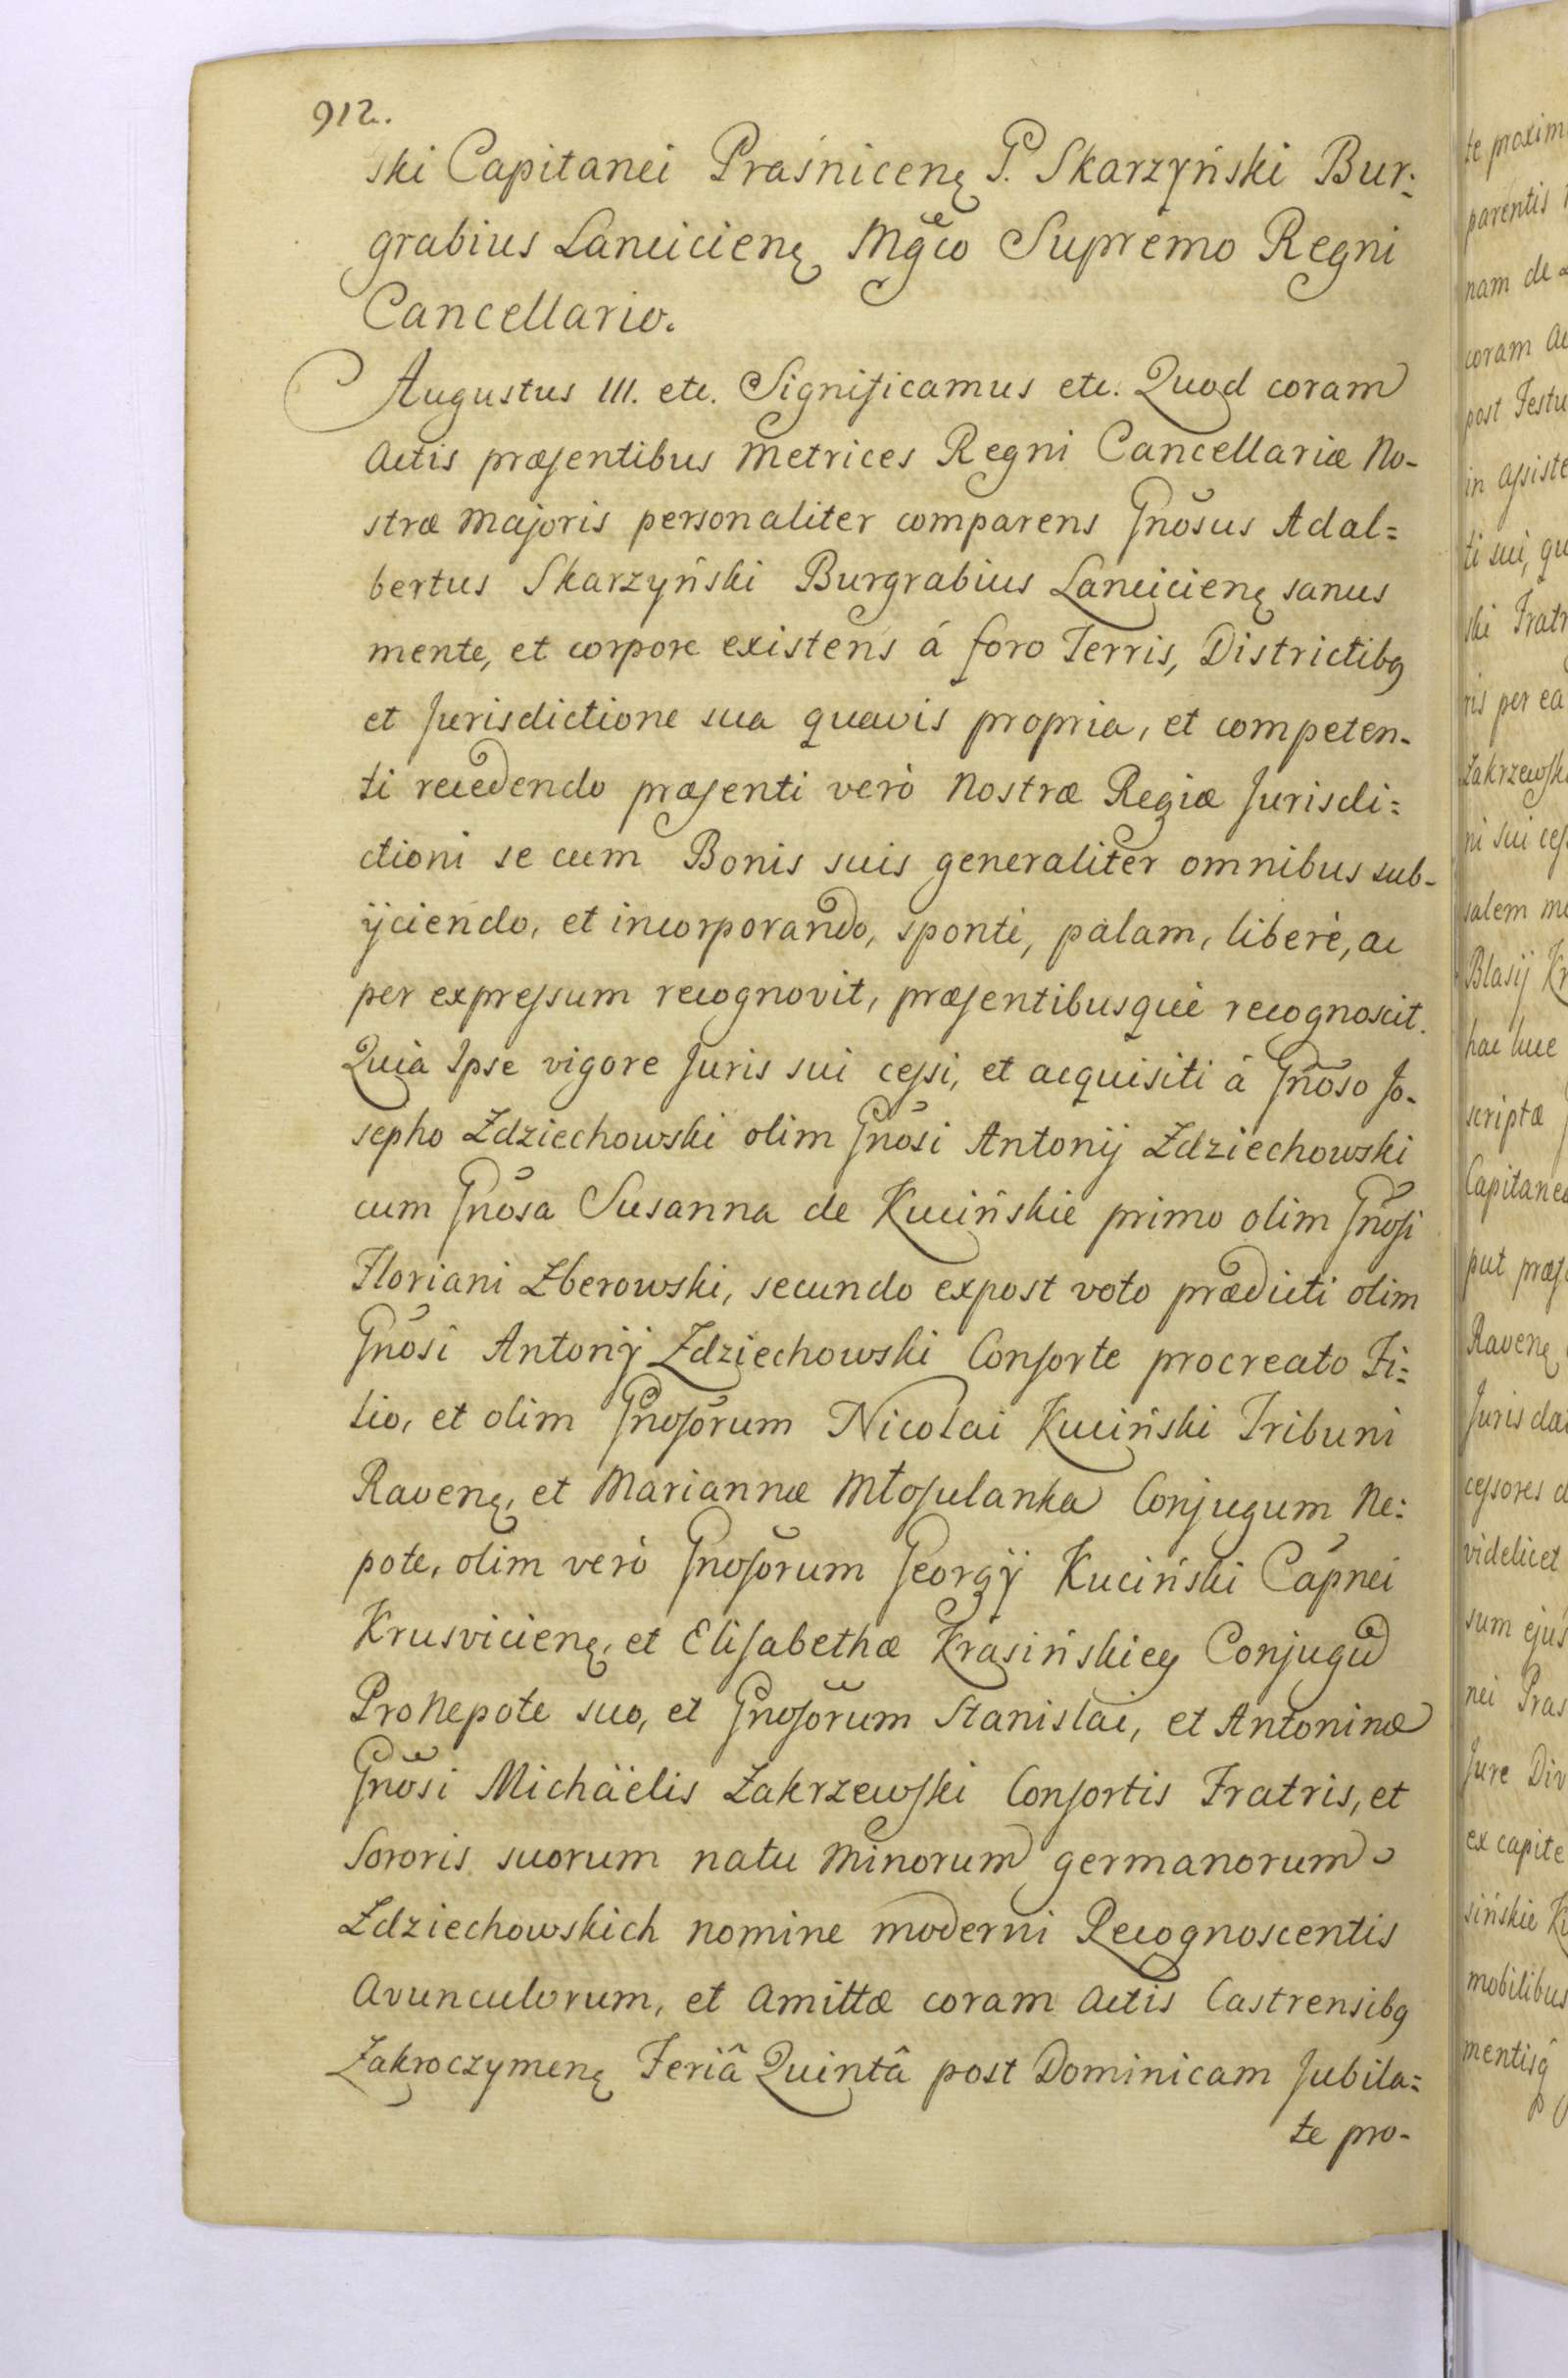 912.
ski Capitanei Praśnicenę G. Skarzyński Bur:
grabius Lancicienę Mg̃co Supremo Regni
Cancellario.
Augustus III. etc. Significamus etc. Quod coram
Actis præsentibus Metrices Regni Cancellariæ No-
stræ Majoris personaliter comparens Gnõsus Adal=
bertus Skarzyński Burgrabius Lancicienę sanus
mente, et corpore existens á foro Terris, Districtibq
et Jurisdictione sua quavis propria, et competen-
ti recedendo præsenti verò Nostræ Regiæ Jurisdi=
ctioni se cum Bonis suis generaliter omnibus sub-
ÿciendo, et incorporando, spontè, palam, liberè, ac
per expressum recognovit, præsentibusquè recognoscit.
Quia Ipse vigore Juris sui cessi, et acquisiti á Gnõso Jo-
sepho Zdziechowski olim Gnõsi Antonij Zdziechowski
cum Gnõsa Susanna de Kucińskie primo olim Gnõsi
Floriani Zberowski, secundo expost voto prædicti olim
Gnõsi Antonij Zdziechowski Consorte procreato Fi=
lio, et olim Gnosõrum Nicolai Kuciński Tribuni
Ravenę, et Mariannæ Młosulanka Conjugum Ne:
pote, olim verò Gnosõrum Georgÿ Kuciński Capñei
Krusvicienę, et Elisabethæ Krasińskiey Conjugũ
ProNepote suo, et Gnosõrum Stanislai, et Antoninæ
Gnõsi Michäelis Zakrzewski Consortis Fratris, et
Sororis suorum natu Minorum germanorum
Zdziechowskich nomine moderni Recognoscentis
Avunculorum, et Amittæ coram Actis Castrensibq
Zakroczymenę Feriâ Quintâ post Dominicam Jubila=
te pro-
te proxim
parentis
nam de
coram Ac
post Festu
in assiste
ti sui, qu
ski Fratr
ris per ea
Zakrzewski
ni sui ces
salem m
Blasij Kr
hac luce
scriptæ
Capitane
put præs
Ravenę
Juris da
cessores
videlicet
sum ejus
nei Pras
Jure Div
ex capite
sińskie K
mobilibus
mentisq̂